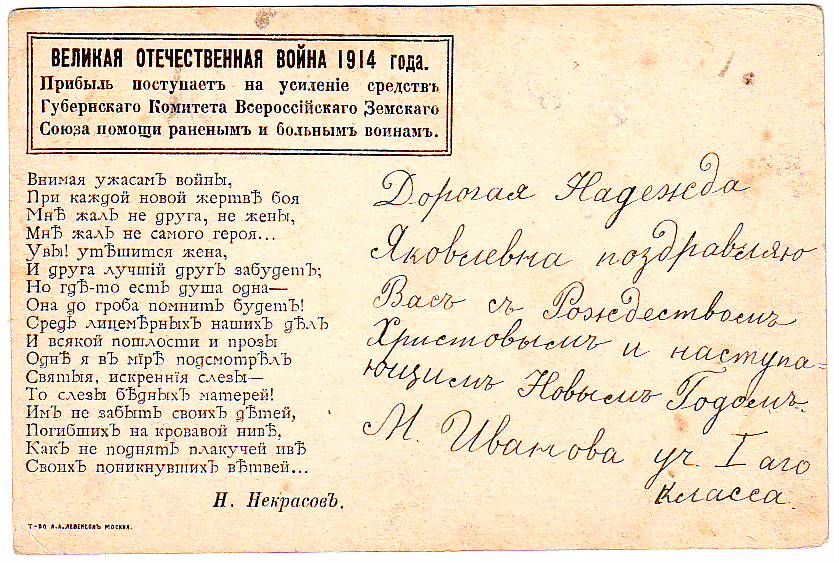 ВЕЛИКАЯ ОТЕЧЕСТВЕННАЯ ВОЙНА 1914 года.
Прибыль поступаетъ на усиленіе средствъ
Губернскаго Комитета Всероссійскаго Земскаго
Союза помощи раненымъ и больнымъ воинамъ.
Внимая ужасамъ войны,
При каждой новой жертвѣ боя
Мнѣ жаль не друга, не жены,
Мнѣ жаль не самого героя...
Увы! утѣшится жена,
И друга лучшій другъ забудетъ;
Но гдѣ-то есть душа одна—
Она до гроба помнить будетъ!
Средь лицемѣрныхъ нашихъ дѣлъ
И всякой пошлости и прозы
Однѣ я в мірѣ подсмотрѣлъ
Святыя, искреннія слезы—
То слезы бѣдныхъ матерей!
Имъ не забыть своихъ дѣтей,
Погибшихъ на кровавой нивѣ,
Какъ не поднять плакучей ивѣ
Своихъ поникнувшихъ вѣтвей...
Н. Некрасовъ.
Т-во А.А.Левенсонъ Москва.
Дорогая Надежда
Яковлевна поздравляю
Васъ съ Рождествомъ
Христовымъ и наступа-
ющимъ Новымъ Годомъ.
М. Иванова уч. I аго
класса.